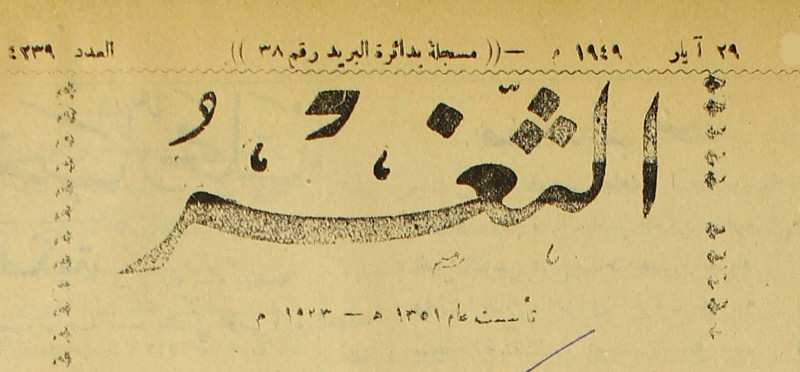 ٢٩ آيار ١٩٤٩ م — (( مسجلة بدائرة البريد رقم ٣٨ )) العدد ٤٢٣٩
الثغر
تأسست عام ١٣٥١ هـ — ١٩٢٣ م